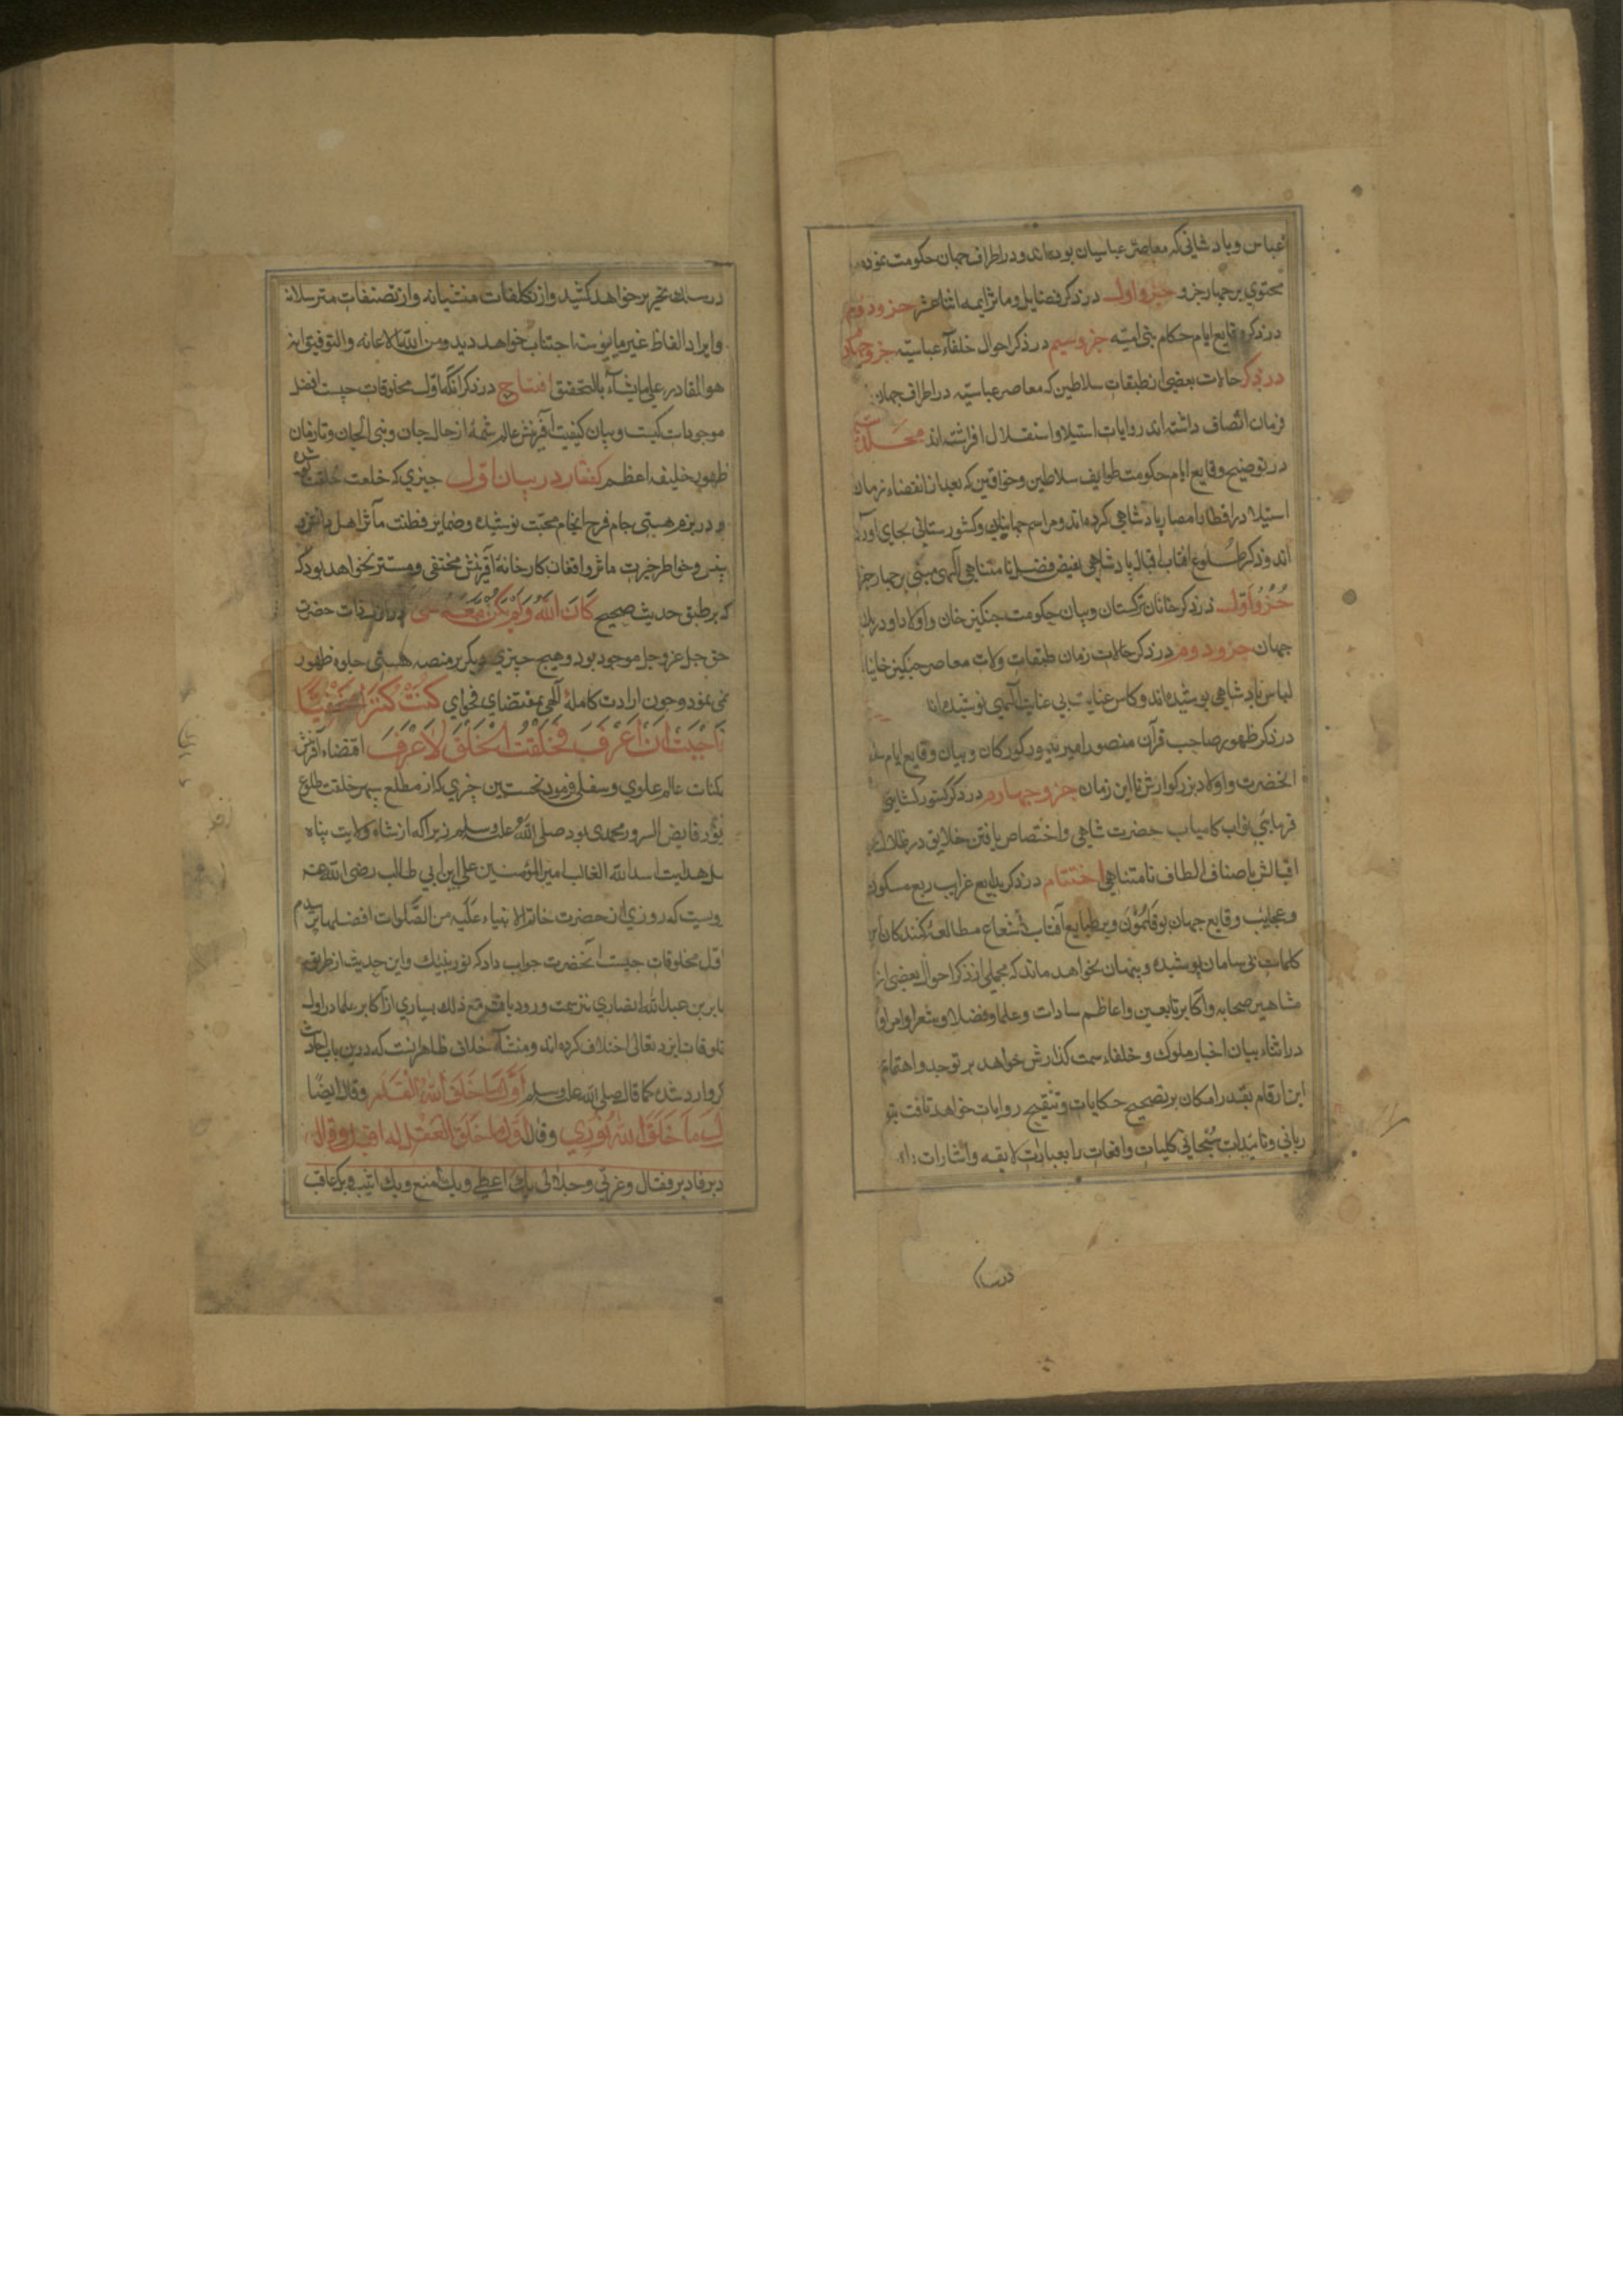 عباس و پادشاهانی که معاصر عباسیان بوده‌اند و در اطراف جهان حکومت نموده
محتوی بر چهار جزو جزو اول در ذکر فضایل و مآثر ایمه اثنا عشر جزو دوم
در ذکر وقایع ایام حکام بنی امیه جزو سیم در ذکر احوال خلفاء عباسیه جزو چهارم
در ذکر حالات بعضی از طبقات سلاطین که معاصر عباسیه در اطراف جهان
فرمان اتصاف داشته‌اند و رایات استیلا و استقلال افراشته‌اند مجلد
در توضیح وقایع ایام حکومت طوایف سلاطین و خواقین که بعد از انقضاء زمان
استیلا در اقطار امصار پادشاهی کرده‌اند و مراسم جهانبانی و کشورستانی بجای آورده
اند و ذکر طلوع آفتاب اقبال پادشاهی بفیض فضل نامتناهی الهی مبنی بر چهار جزو
جزو اول در ذکر خانان ترکستان و بیان حکومت جنکیز خان و اولاد او در
جهان جزو دوم در ذکر حالات زمان طبقات ولات معاصر جنکیز خانیان
لباس پادشاهی پوشیده‌اند و کاس عنایت بی غایت الهی نوشیده‌اند
در ذکر ظهور صاحب قرآن منصور امیر تیمور کورکان و بیان وقایع ایام
آنحضرت و اولاد بزرکوارش تا این زمان جزو چهارم در ذکر کشورکشایی
فرمایی نواب کامیاب حضرت شاهی و اختصاص یافتن خلایق در ظلال
اقبالش باصناف الطاف نامتناهی اختتام در ذکر بدایع غرایب ربع مسکون
و عجایب وقایع جهان بوقلمون و بر طبایع آفتاب شعاع مطالعه کنندکان این
کلمات بی سامان پوشیده و پنهان نخواهد ماند که مجملی از ذکر احوال بعضی از
مشاهیر صحابه و اکابر تابعین و اعاظم سادات و علما و فضلا و شعرا و امرا و
در اثناء بیان اخبار ملوک و خلفاء سمت کذارش خواهد پر توجه و اهتمام
این ارقام بقدر امکان بر تصحیح حکایات و تنقیح روایات خواهد تافت بتو
ربانی و تائیدات سبحانی کلیات واقعات را بعبارات لایقه و اشارات
در سلک
در سلک تحریر خواهد کشید و از تکلفات منشیانه و از تصنفات مترسلانه
و ایراد الفاظ غیر مانوسه اجتناب خواهد دید و من الله الاعانه و التوفیق انه
هو القادر علی مایشاء بالتحقیق افتتاح در ذکر آنکه اول مخلوقات چیست افضل
موجودات کیست و بیان کیفیت آفرینش عالم شمهٔ از حال جان و بنی الجان و تا زمان
ظهور خلیفه اعظم کفتار در بیان اول چیزی که خلعت خلقت
و در بزم هستی جام فرح انجام محبت نوشیده و ضمایر فطنت مآثر اهل دانش و
بینش و خواطر خبرت ماثر واقفان کارخانهٔ آفرینش مختفی و مستتر نخواهد بود که
که بر طبق حدیث صحیح کَانَ اللهُ وَلَم یَکُن مَعَهُ شَی ذات حضرت
حق جل عز و جل موجود بود و هیچ چیزی دیکر بر منصه هستی جلوه ظهور
نمی نمود و چون ارادت کاملهٔ الهی بمقتضای فحوای کُنتُ کَنزاً مَخفِیّاً
فَاَحبَبتُ اَن اُعرَفَ فَخَلَقتُ الخَلقَ لِاُعرَفَ اقتضاء آفرینش
کاینات عالم علوی و سفلی فرمود نخستین چیزی که از مطلع سپهر خلقت طلوع
نور فایض السرور محمدی بود صلی الله علیه وسلم زیرا که از شاه ولایت پناه
هدایت اسد الله الغالب امیر المؤمنین علی ابن ابی طالب رضی الله عنه
مرویست که روزی از حضرت خاتم الانبیاء علیه من الصلوات افضلها
اول مخلوقات چیست آنحضرت جواب داد که نور نبیک و این حدیث از طریق
جابر بن عبد الله انصاری نیز سمت ورود یافته مع ذلک بسیاری از اکابر علما در اول
مخلوقات ایزد تعالی اختلاف کرده‌اند و منشاء خلاف ظاهرا آنست که درین باب احادیث
وارد شده کما قال صلی الله علیه وسلم اَوَّلُ مَا خَلَقَ اللهُ القَلَم و قال ایضًا
اَوَّلُ مَا خَلَقَ اللهُ نُورِی و قال اَوَّلُ مَا خَلَقَ العَقل
ادبر فادبر فقال وعزتی وجلالی بک اعطی وبک امنع وبک اثیب وبک اعاقب